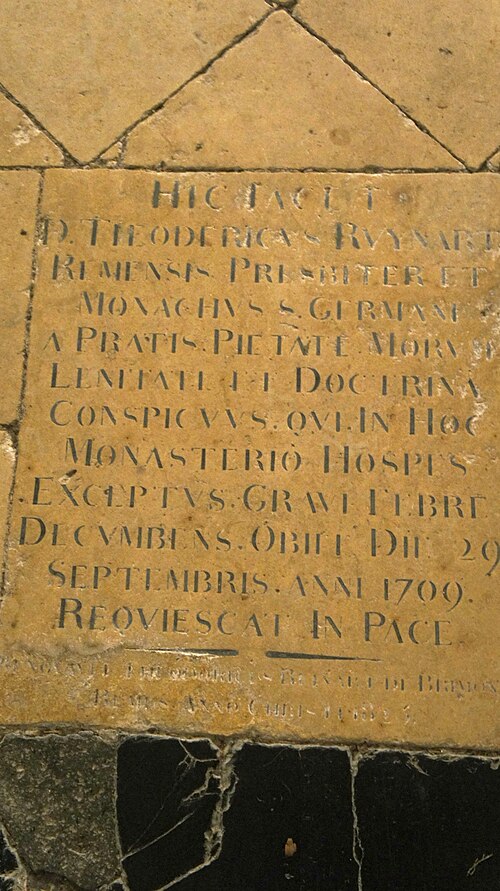 HIC JACET
D. THEODERICVS RVYNART
REMENSIS PRESBITER ET
MONACHVS S. GERMANI
A PRATIS. PIETATE MORVM
LENITATE ET DOCTRINA
CONSPICVVS. QVI. IN HOC
MONASTERIO HOSPES
EXCEPTVS. GRAVI FEBRE
DECVMBENS. OBIIT DIE 29
SEPTEMBRIS. ANNI 1709.
REQVIESCAT IN PACE
DE BRIMON
REMIS